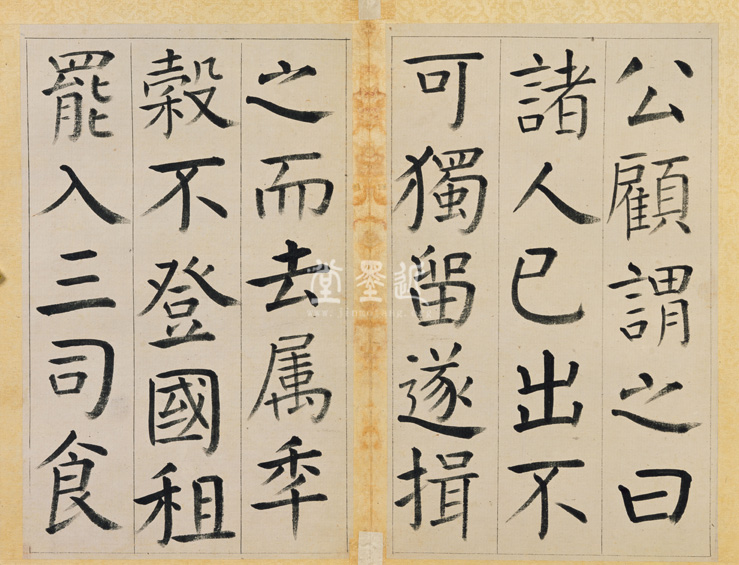 公顧謂之曰
諸人已出不
可獨留遂揖
之而去属年
榖不登國租
罷入三司食
近墨堂
www.jinmotang.org